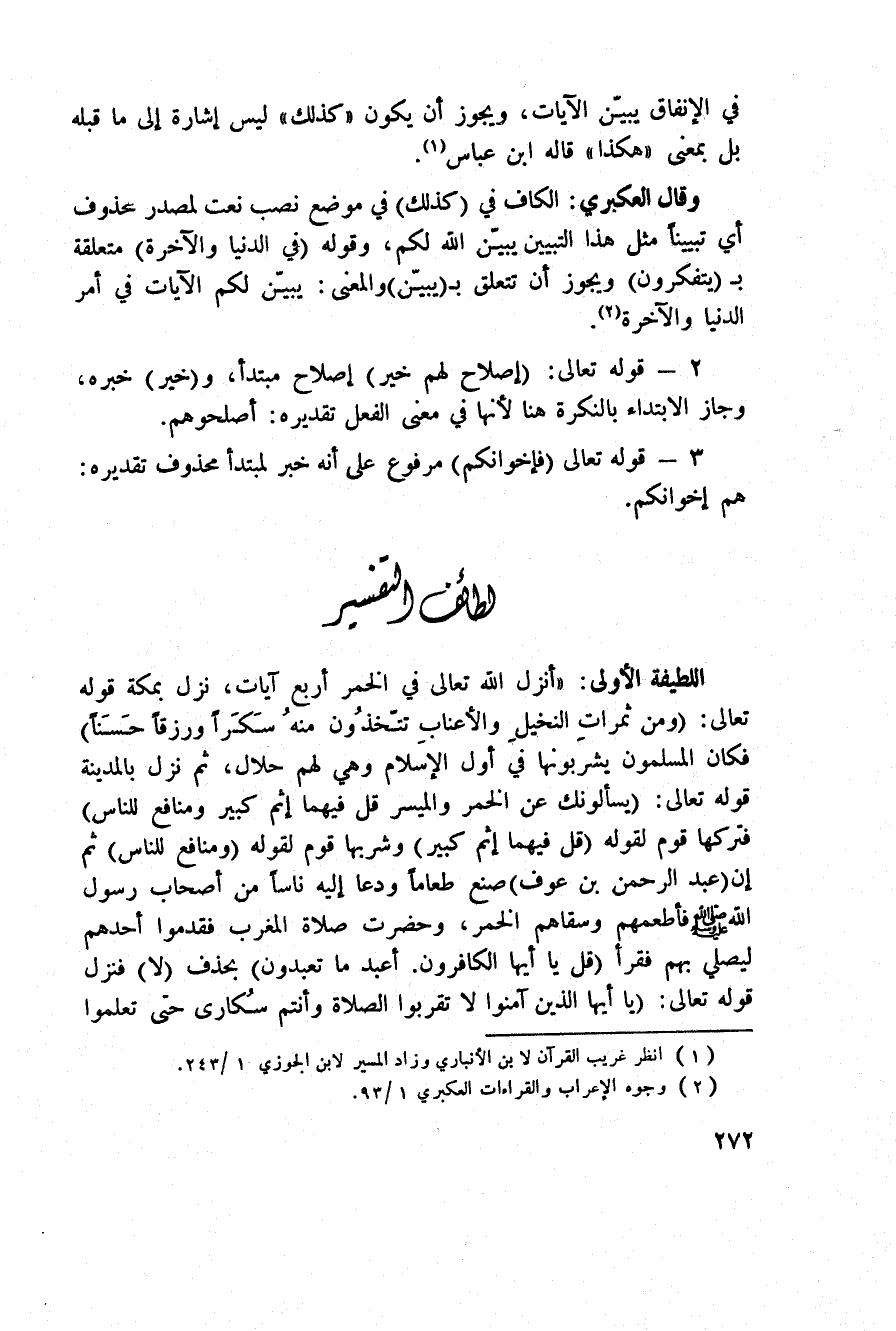 في الإنفاق يبيّن الآيات، ويجوز أن يكون «كذلك» ليس إشارة إلى ما قبله
بل بمعنى «هكذا» قاله ابن عباس(١).
وقال العكبري: الكاف في (كذلك) في موضع نصب نعت لمصدر محذوف
أي تبييناً مثل هذا التبيين يبيّن الله لكم، وقوله (في الدنيا والآخرة) متعلقة
بـ (يتفكرون) ويجوز أن تتعلق بـ(يبيّن)والمعنى: يبيّن لكم الآيات في أمر
الدنيا والآخرة(٢).
٢ – قوله تعالى: (إصلاح لهم خير) إصلاح مبتدأ، و(خير) خبره،
وجاز الابتداء بالنكرة هنا لأنها في معنى الفعل تقديره: أصلحوهم.
٣ – قوله تعالى (فإخوانكم) مرفوع على أنه خبر لمبتدأ محذوف تقديره:
هم إخوانكم.
لطائف التفسير
اللطيفة الأولى: «أنزل الله تعالى في الخمر أربع آيات، نزل بمكة قوله
تعالى: (ومن ثمراتِ النخيلِ والأعنابِ تتّخذُون منهُ سَكَراً ورزقاً حَسَناً)
فكان المسلمون يشربونها في أول الإسلام وهي لهم حلال، ثم نزل بالمدينة
قوله تعالى: (يسألونك عن الخمر والميسر قل فيهما إثم كبير ومنافع للناس)
فتركها قوم لقوله (قل فيهما إثم كبير) وشربها قوم لقوله (ومنافع للناس) ثم
إن(عبد الرحمن بن عوف)صنع طعاماً ودعا إليه ناساً من أصحاب رسول
الله ﷺ فأطعمهم وسقاهم الخمر، وحضرت صلاة المغرب فقدموا أحدهم
ليصلي بهم فقرأ (قل يا أيها الكافرون. أعبد ما تعبدون) بحذف (لا) فنزل
قوله تعالى: (يا أيها الذين آمنوا لا تقربوا الصلاة وأنتم سُكارى حتّى تعلموا
(١) انظر غريب القرآن لابن الأنباري وزاد المسير لابن الجوزي ١/٢٤٣.
(٢) وجوه الإعراب والقراءات العكبري ١/٩٣.
٢٧٢